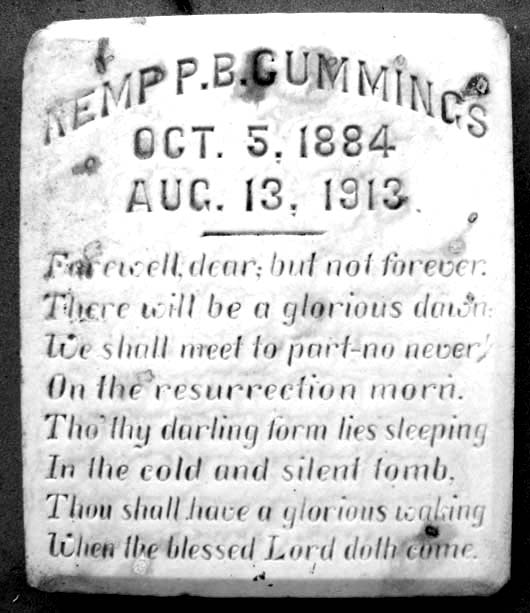 KEMP P. B. CUMMINGS
OCT. 5, 1884
AUG. 13, 1913.
Farewell, dear; but not forever.
There will be a glorious dawn;
We shall meet to part-no never!
On the resurrection morn.
Tho' thy darling form lies sleeping
In the cold and silent tomb,
Thou shall have a glorious waking
When the blessed Lord doth come.